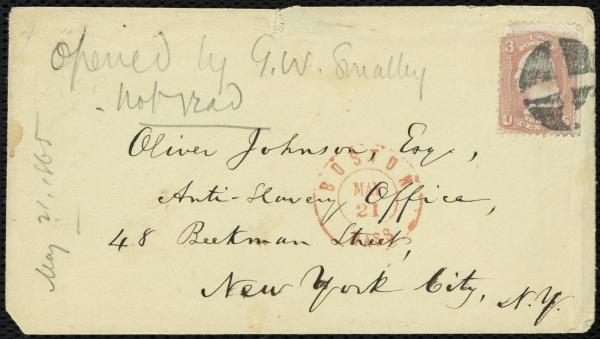 Opened by G.W. Smalley
- not read
May 21, 1865
Oliver Johnson, Esq,
Anti-Slavery Office,
48 Beekman Street,
New York City, N.Y.
BOSTON
MAY
21
MASS
3 3
U S
CENTS